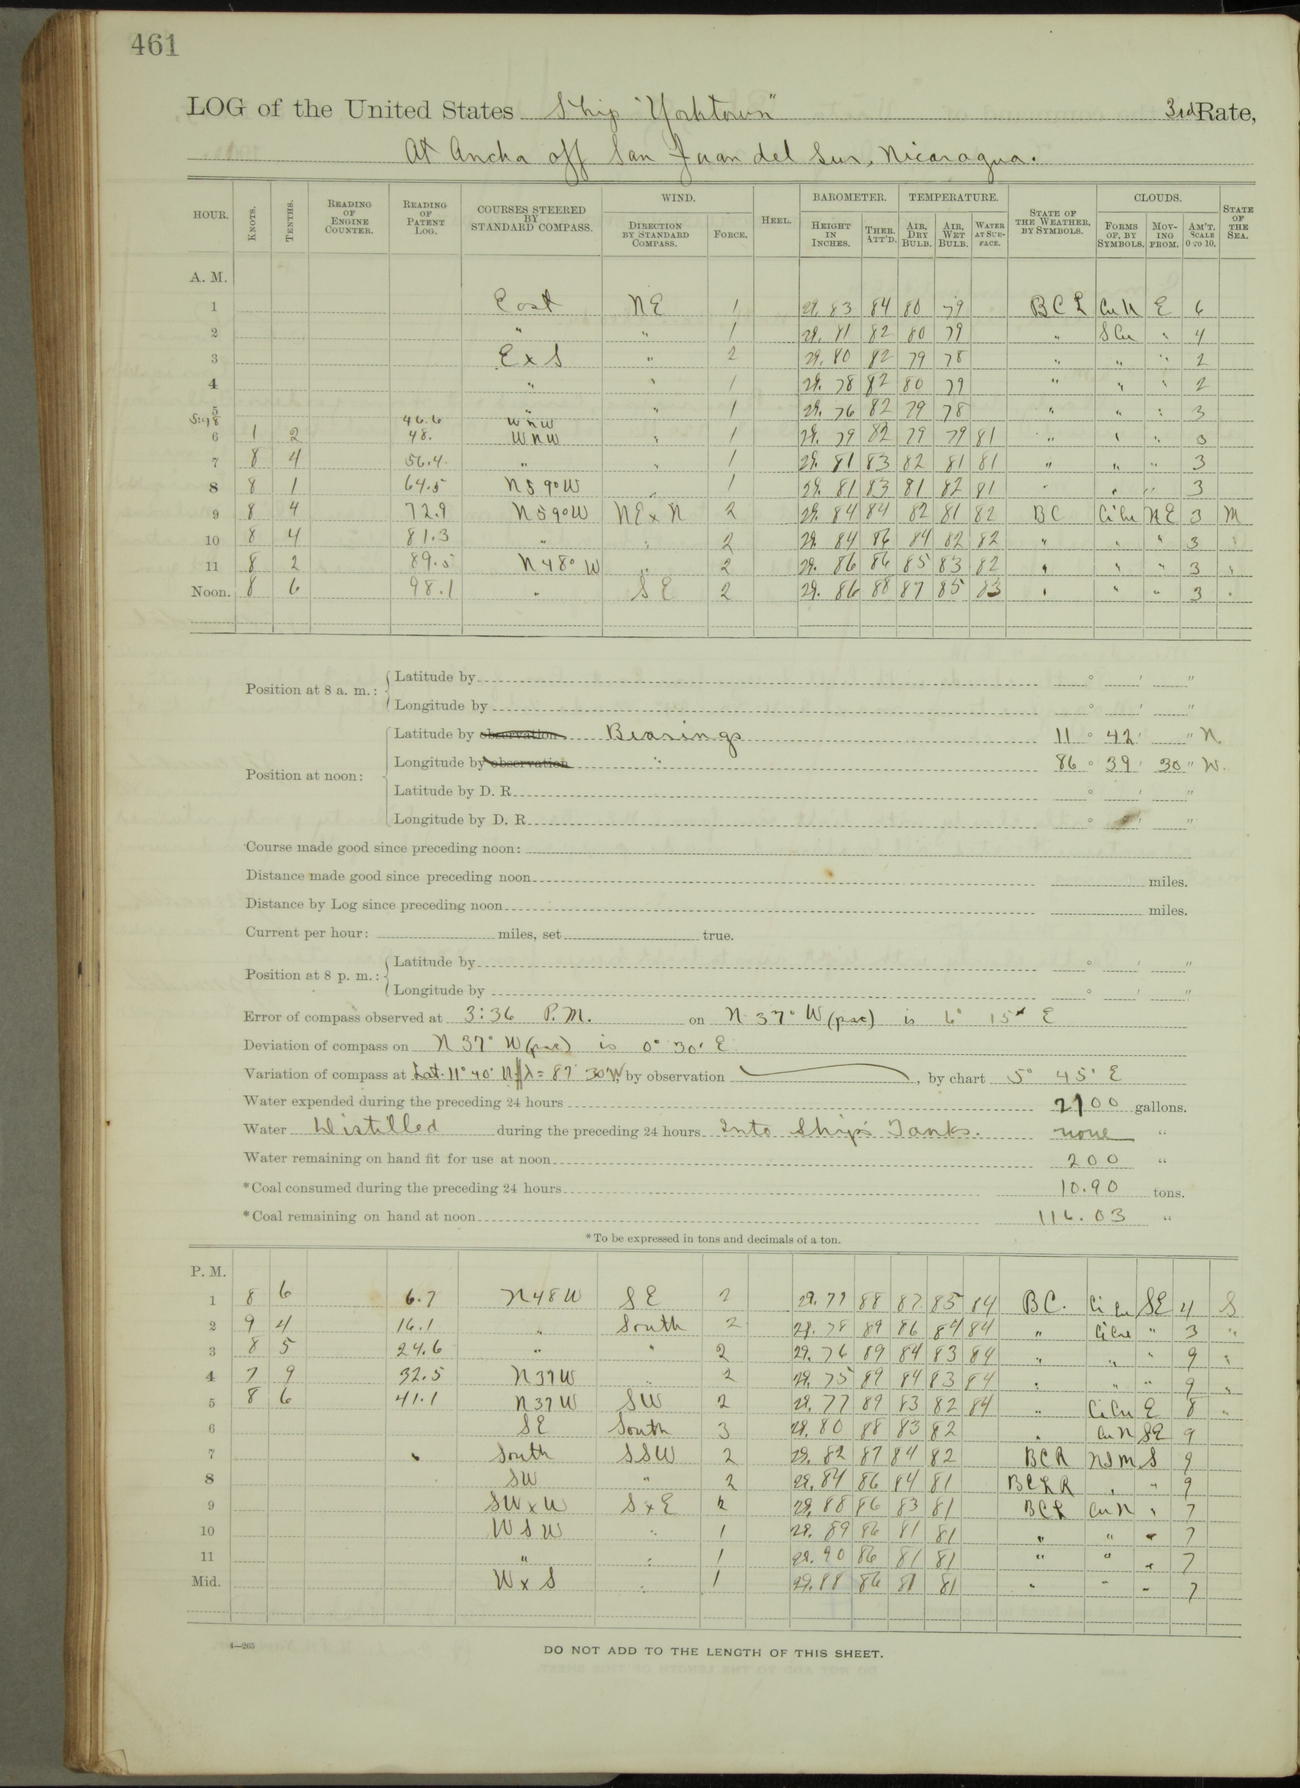 461
LOG of the United States Ship "Yorktown" 3rd Rate,
At Ancho off San Juan del Sur, Nicaragua.
HOUR. KNOTS. TENTHS. READING OF ENGINE COUNTER. READING OF PATENT LOG. COURSES STEERED BY STANDARD COMPASS. WIND. DIRECTION BY STANDARD COMPASS. FORCE. HEEL. BAROMETER. HEIGHT IN INCHES. THER. ATT'D. TEMPERATURE. AIR, DRY BULB. AIR, WET BULB. WATER AT SURFACE. STATE OF THE WEATHER, BY SYMBOLS. CLOUDS. FORMS OF, BY SYMBOLS. MOVING FROM. AM'T. SCALE 0 TO 10. STATE OF THE SEA.
A. M.
1 East NE 1 29.83 84 80 79 BCL CuN E 6
2 " " 1 29.81 82 80 79 " SCu " 4
3 ExS " 2 29.80 82 79 78 " " " 2
4 " " 1 29.78 82 80 79 " " " 2
5 " " 1 29.76 82 79 78 " " " 3
46.6 WNW
6 1 2 48. WNW " 1 29.79 82 79 79 81 " " " 3
7 8 4 56.4 " " 1 29.81 83 82 81 81 " " " 3
8 8 1 64.5 N59°W " 1 29.81 83 81 82 81 " " " 3
9 8 4 72.9 N59°W NExN 2 29.84 84 82 81 82 BC CiCu NE 3 M
10 8 4 81.3 " " 2 29.84 86 84 82 82 " " " 3 "
11 8 2 89.5 N48°W " 2 29.86 86 85 83 82 " " " 3 "
Noon. 8 6 98.1 " SE 2 29.86 88 87 85 83 " " " 3 "
Position at 8 a. m.: Latitude by ° ′ ″
Longitude by ° ′ ″
Position at noon: Latitude by observation Bearings 11° 42′ ″ N
Longitude by observation " 86° 39′ 30″ W.
Latitude by D. R. ° ′ ″
Longitude by D. R. ° ′ ″
Course made good since preceding noon:
Distance made good since preceding noon miles.
Distance by Log since preceding noon miles.
Current per hour: miles, set true.
Position at 8 p. m.: Latitude by ° ′ ″
Longitude by ° ′ ″
Error of compass observed at 3:36 P.M. on N 37° W (psc) is 6° 15' E
Deviation of compass on N 37° W (psc) is 0° 30' E
Variation of compass at Lat. 11° 40' N λ = 87 30 W, by observation , by chart 5° 45' E
Water expended during the preceding 24 hours 2100 gallons.
Water Distilled during the preceding 24 hours Into Ship's Tanks. none "
Water remaining on hand fit for use at noon 200 "
*Coal consumed during the preceding 24 hours 10.90 tons.
*Coal remaining on hand at noon 116.03 "
*To be expressed in tons and decimals of a ton.
P. M.
1 8 6 6.7 N48W SE 2 29.79 88 87 85 84 BC. CiCu SE 4 S
2 9 4 16.1 " South 2 29.78 89 86 84 84 " CiCu " 3 "
3 8 5 24.6 " " 2 29.76 89 84 83 84 " " " 9 "
4 7 9 32.5 N37W " 2 29.75 89 84 83 84 " " " 9 "
5 8 6 41.1 N37W SW 2 29.77 89 83 82 84 " CiCu E 8 "
6 SE South 3 29.80 88 83 82 " CuN SE 9
7 South SSW 2 29.82 87 84 82 BCR NSM S 9
8 SW " 2 29.84 86 84 81 BCLR " " 9
9 SWxW SxE 2 29.88 86 83 81 BCL CuN " 7
10 WSW " 1 29.89 86 81 81 " " " 7
11 " " 1 29.90 86 81 81 " " " 7
Mid. WxS " 1 29.88 86 81 81 " " " 7
4—265
DO NOT ADD TO THE LENGTH OF THIS SHEET.